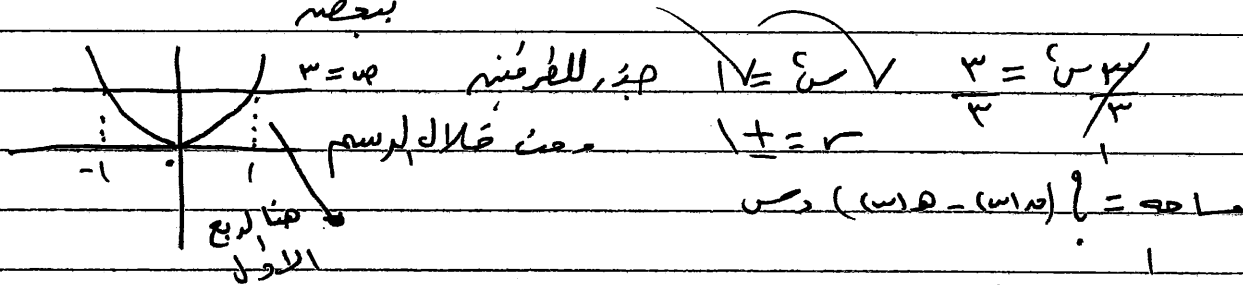 ببعض
٣س² / ٣ = ٣ / ٣ √س² = √١ جذر للطرفين ص = ٣
١ س = ± ١ ومن خلال الرسم ١ ٠ -١
مساحة = ∫ (ق(س) - ه(س)) دس هنا لربع
١ الاول